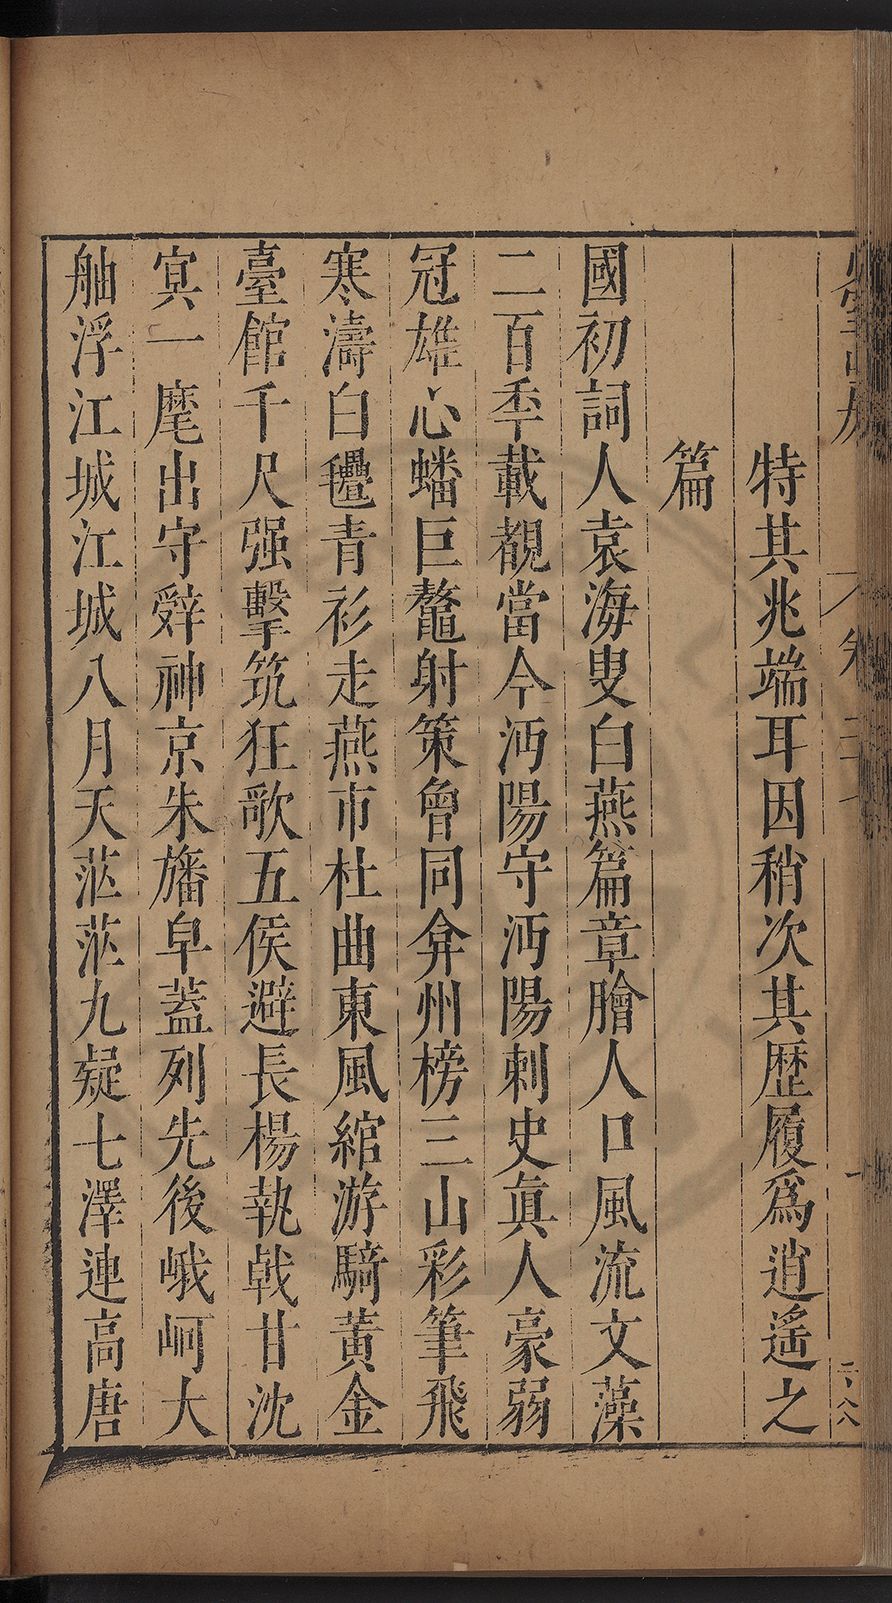 特其兆端耳因稍次其歷履爲逍遙之
篇
國初詞人袁海叟白燕篇章膾人口風流文藻
二百季載覩當今沔陽守沔陽刺史眞人豪弱
冠雄心蟠巨鼇射策會同弇州榜三山彩筆飛
寒濤白氎青衫走燕市杜曲東風綰游騎黃金
臺館千尺强擊筑狂歌五侯避長楊執戟甘沈
冥一麾出守辤神京朱旛皁蓋列先後峨峒大
舳浮江城江城八月天茫茫九疑七澤連高唐